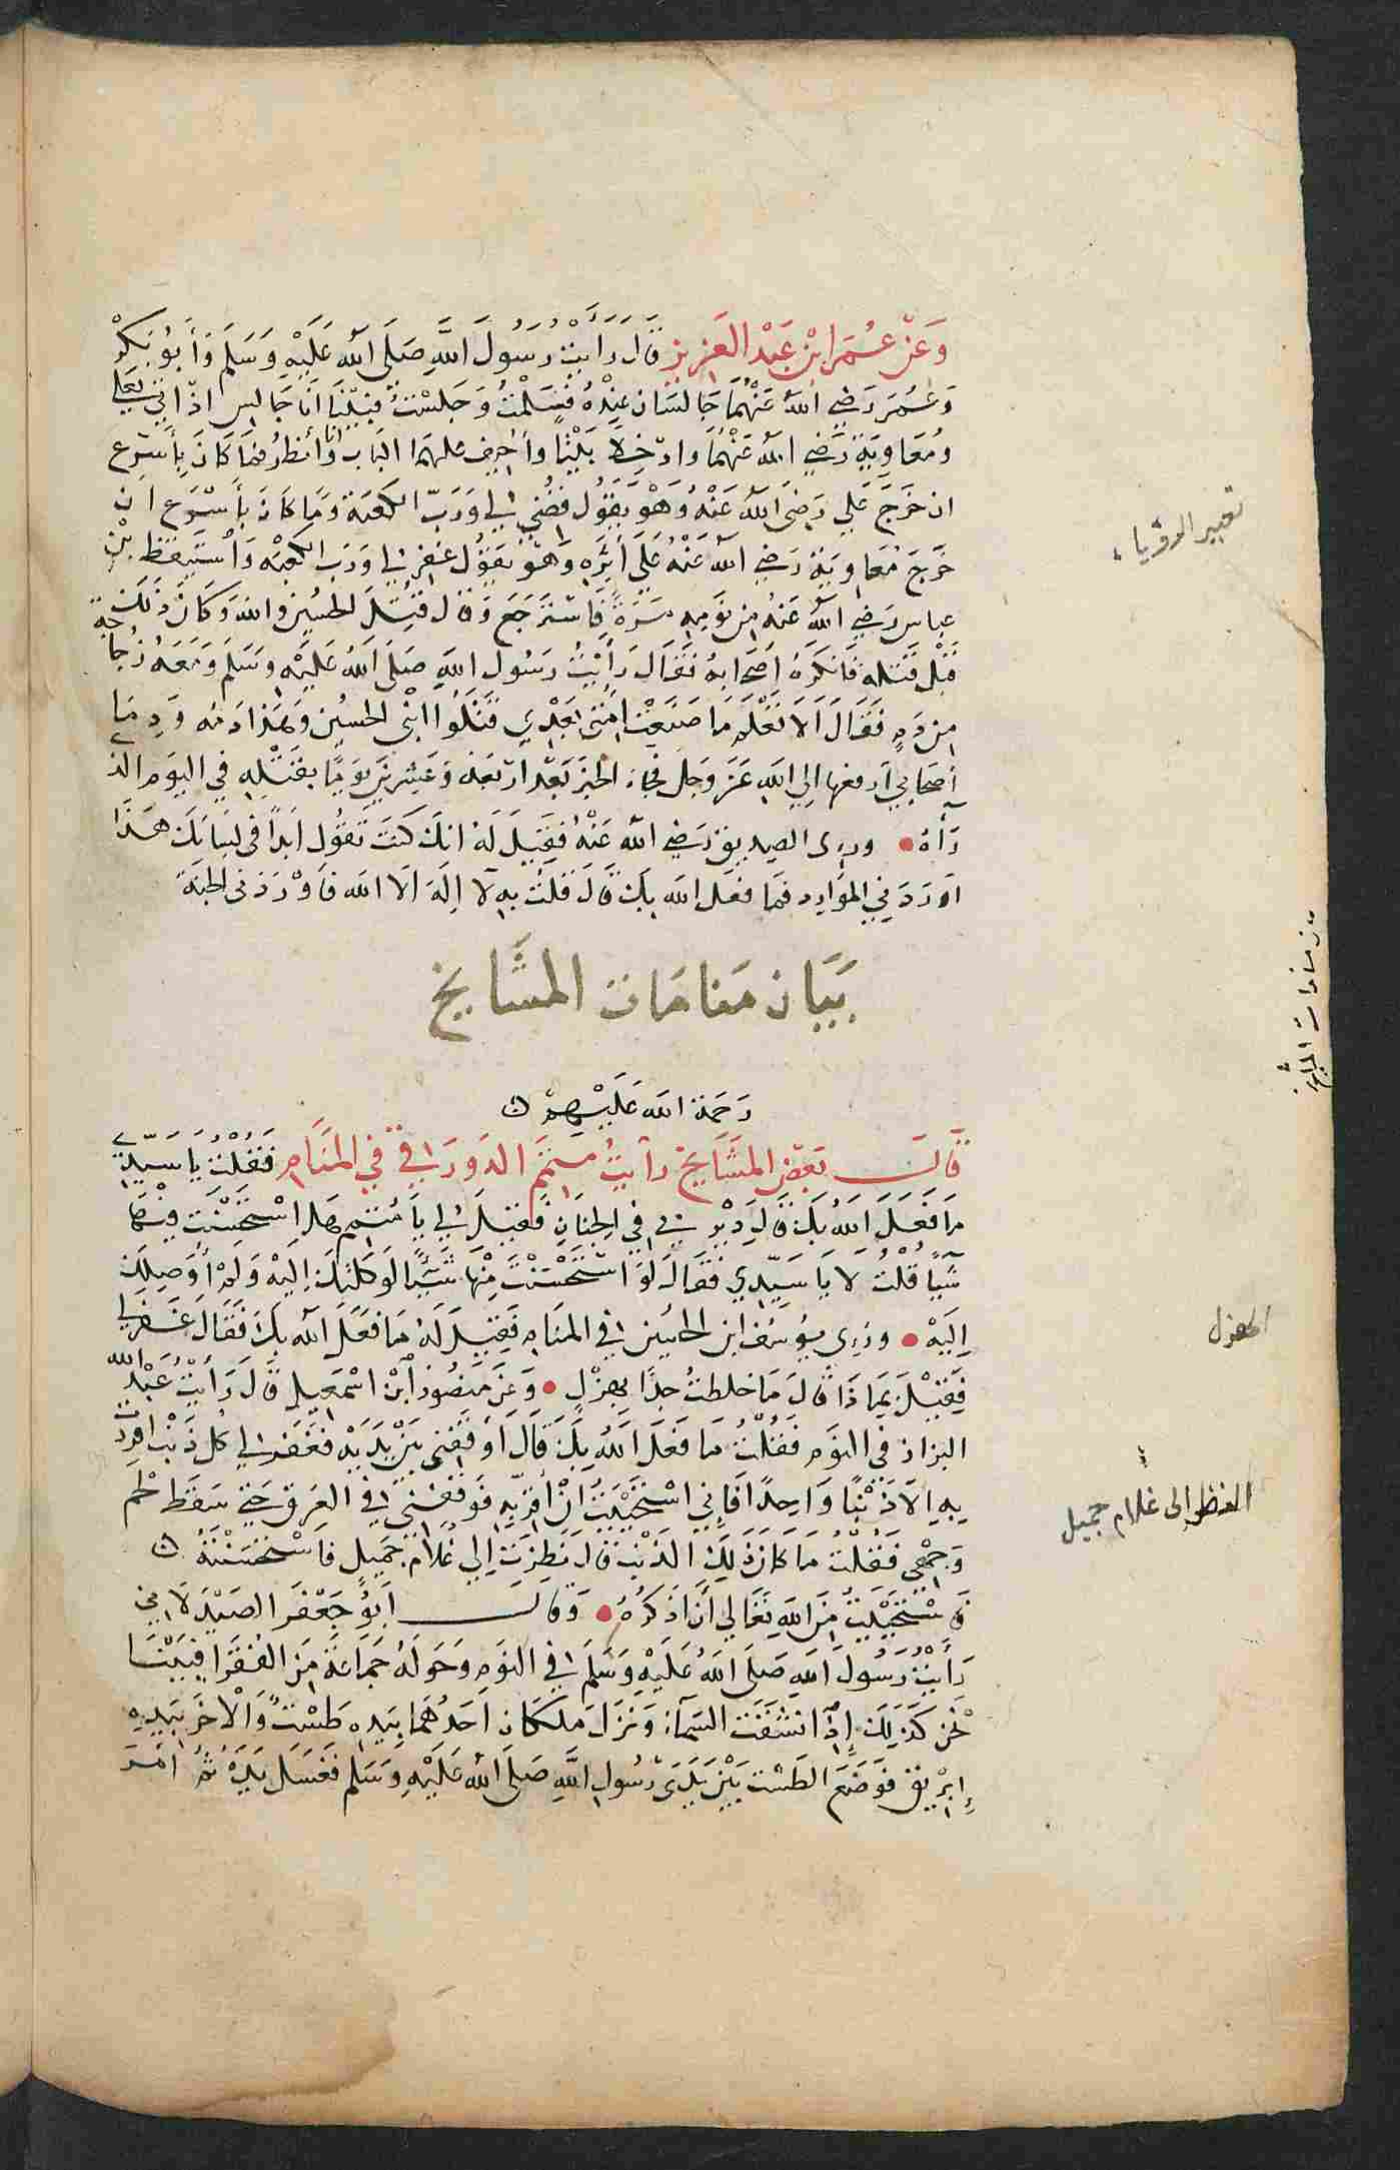 وَعَنْ عُمَرَ ابْنِ عَبْدِ العَزِيزِ قَالَ رَأَيْتُ رَسُولَ اللَّهِ صَلَى اللّه عَلَيْهِ وَسَلم وَأَبُو بَكْرٍ
وَعُمَرَ رَضِي اللّهُ عَنْهُمَا جَالسَان عِنْدهُ فسَلمْتُ وَجَلسْتُ فبَيْنَا أنَا جَالِس اذ اتي بعَلي
ومُعَاويَة رَضي اللّه عَنْهُمَا وادْخِلَا بَيْتًا وأجيف عليهمَا البَاب وانا أنظرُ فمَا كَانَ بِأسْرَع
ان خَرَجَ عَلي رَضيَ اللّهُ عَنْهُ وَهْوَ يَقُول قُضِيَ لي وَرَبّ الكَعبَة وَمَا كَانَ بأسْرَع ان
خَرَجَ مُعَاويَة رَضي اللّه عَنْهُ عَلَى أثَرِهِ وَهْوَ يَقُولُ غفِر لي وَرَبّ الكَعْبَة وَاسْتَيقظ بْن
عباس رَضي اللّه عَنهُ مِن نَومِهِ مَرَةً فَاسْتَرجَعَ وَقَال قُتِلَ الحسُين والله وَكَانَ ذَلكَ
قَبْل قَتله فَانكَرَهُ أصحَابهُ فَقَالَ رَأَيْتُ رَسُول اللّهِ صَلَى اللّهُ عَليْهِ وسَلمَ وَمَعَهُ زُجَاجَة
مِن دَمٍ فقَالَ ألَا تَعْلَم مَا صَنَعَتْ امَتي بَعْدِي قَتَلُوا ابْني الحسُين وَهَذَا دَمه وَدِمَا
أصحَابي أرفعها إلى اللّه عَزَ وَجَل فجَاءَ الخبَر بَعْد أرْبَعَة وَعِشرينَ يوَمًا بقَتْلِهِ في اليَوم الذي
رَآهُ • ورؤى الصِديق رَضي اللّه عَنْهُ فَقِيلَ لَهُ انكَ كنتَ تَقُول أبَدًا في لسَانكَ هَذَا
أورَدَني المَوَارد فمَا فعَل اللّه بكَ قَالَ قلتُ به لَا إلَهَ الَا اللّه فَأوْرَدَني الجنَة
بَيَان مَنامَات المَشَايخ
رَحمَة اللّه عَلَيْهِمْ
قَالَ بَعْضُ المَشَايخ رَأيتُ مُتَمَم الدَوْرَقي في المَنَامِ فَقُلْتُ يَا سَيّدي
مَا فَعَلَ اللّهُ بكَ قَالَ دِيرَ بي في الجنَانِ فَقِيلَ لي يا مُتمم هَل اسْتَحسَنْتَ فِيهَا
شَيًا قلْتُ لا يَا سَيّدي فَقَالَ لَو اسْتَحْسَنْتَ مِنْهَا شَيئًا لَوكَلتكَ إلَيهْ وَلَمْ أُوَصِلكَ
إِلَيْهْ • ورُؤي يُوسُف ابن الحسُين في المنَام فَقِيلَ لَهُ مَا فَعَلَ اللّه بكَ فَقَالَ غَفَر لي
فَقِيْلَ بمَا ذَا قَالَ مَا خلطتُ جدًا بهزْلٍ • وَعَن مَنصُور ابْن اسْمعيل قَالَ رَأيْتُ عَبْد اللّه
البزاز في النوَم فَقُلْتُ مَا فَعَلَ اللّهُ بكَ قَالَ أَوقَفَني بَيْنَ يَدَيْه فغَفَر لي كُل ذَنْبٍ اقررت
بِهِ إلَا ذَنْبًا وَاحِدًا فَإني اسْتَحْيَيْتُ أنْ أُقِرَّ بِهِ فَوقَفَني في العَرق حَتي سَقَط لحْم
وَجْهي فَقُلْتُ مَا كَانَ ذَلِكَ الذَنْب قَالَ نَظَرْتُ إلي غُلَامٍ جَميلٍ فَاسْتَحسَنْتُهُ
فَاسْتَحْيَيْتُ مِنَ اللّه تَعَالي أن أذكرَهُ • وَقَالَ أبَوُ جَعْفَر الصَيْدَلَاني
رَأَيْتُ رَسُولَ اللّهِ صَلَى اللّهُ عَلَيْهِ وَسَلَمَ في النوَم وَحَولَهُ جَمَاعَة مِنَ الفُقَرَا فبَيْنَا
نَحْن كَذَلكَ إِذِ انشَقَت السَمَآءُ وَنَزَلَ مَلكَان أحَدُهُمَا بيَدِهِ طَسْتٌ وَالْاخَر بيَدِهِ
إبْريق فوَضَعَ الطَسْت بَيْنَ يَدَيَ رسُول اللَّهِ صَلى اللّه عَليْهِ وَسَلم فَغسَل يَدَهُ ثمُ أمَرَ
تعبير الرؤياء
من منامات المشايخ
الهزل
النظر الى غلام جميل